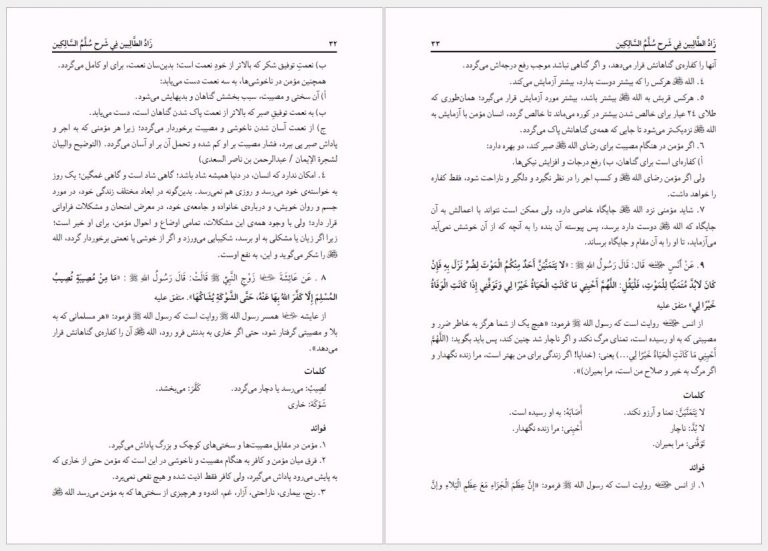 ۳۲ زَادُ الطَّالِبِين فِي شَرحِ سُلَّمُ السَّالِكِين
ب) نعمتِ توفیق شکر که بالاتر از خودِ نعمت است؛ بدین‌سان نعمت، برای او کامل می‌گردد.
همچنین مؤمن در ناخوشی‌ها، به سه نعمت دست می‌یابد:
أ) آن سختی و مصیبت، سبب بخشش گناهان و بدیهایش می‌شود.
ب) به نعمت توفیقِ صبر که بالاتر از نعمت پاک شدن گناهان است، دست می‌یابد.
ج) از نعمت آسان شدنِ ناخوشی و مصیبت برخوردار می‌گردد؛ زیرا هر مؤمنی که به اجر و
پاداش صبر پی ببرد، فشار مصیبت بر او کم شده و تحمل آن بر او آسان می‌گردد. (التوضیح والبیان
لشجرة الإیمان / عبدالرحمن بن ناصر السعدي)
۴. امکان ندارد که انسان، در دنیا همیشه شاد باشد؛ گاهی شاد است و گاهی غمگین؛ یک روز
به خواسته‌ی خود می‌رسد و روزی هم نمی‌رسد. بدین‌گونه در ابعاد مختلف زندگی خود، در مورد
جسم و روان خویش، و درباره‌ی خانواده و جامعه‌ی خود، در معرض امتحان و مشکلات فراوانی
قرار دارد؛ ولی با وجود همه‌ی این مشکلات، تمامی اوضاع و احوال مؤمن، برای او خیر است؛
زیرا اگر زیان یا مشکلی به او برسد، شکیبایی می‌ورزد و اگر از خوشی یا نعمتی برخوردار گردد، الله
را شکر می‌گوید و این، به نفع اوست.
۸ . عَن عَائِشَةَ زَوْجِ النَّبِيِّ ﷺ قَالَتْ: قَالَ رَسُولُ اللهِ ﷺ: «مَا مِنْ مُصِيبَةٍ تُصِيبُ
المُسْلِمَ إِلَّا كَفَّرَ اللهُ بِهَا عَنْهُ، حَتَّى الشَّوْكَةِ يُشَاكُهَا». متفق علیه
از عایشه همسر رسول الله ﷺ روایت است که رسول الله ﷺ فرمود: «هر مسلمانی که به
بلا و مصیبتی گرفتار شود، حتی اگر خاری به بدنش فرو رود، الله آن را کفاره‌ی گناهانش قرار
می‌دهد».
کلمات
تُصِيبُ: می‌رسد یا دچار می‌گردد. کَفَّرَ: می‌بخشد.
شَوْکَة: خاری
فوائد
۱. مؤمن در مقابل مصیبت‌ها و سختی‌های کوچک و بزرگ پاداش می‌گیرد.
۲. فرق میان مؤمن و کافر به هنگام مصیبت و ناخوشی در این است که مؤمن حتی از خاری که
به پایش می‌رود پاداش می‌گیرد، ولی کافر فقط اذیت شده و هیچ نفعی نمی‌برد.
۳. رنج، بیماری، ناراحتی، آزار، غم، اندوه و هرچیزی از سختی‌ها که به مؤمن می‌رسد الله
زَادُ الطَّالِبِين فِي شَرحِ سُلَّمُ السَّالِكِين ۳۳
آنها را کفاره‌ی گناهانش قرار می‌دهد، و اگر گناهی نباشد موجب رفع درجه‌اش می‌گردد.
۴. الله هرکس را که بیشتر دوست بدارد، بیشتر آزمایش می‌کند.
۵. هرکس قربش به الله بیشتر باشد، بیشتر مورد آزمایش قرار می‌گیرد؛ همان‌طوری که
طلای ۲۴ عیار برای خالص شدن بیشتر در کوره می‌ماند تا خالص گردد، انسان مؤمن با آزمایش به
الله نزدیک‌تر می‌شود تا جایی که همه‌ی گناهانش پاک می‌گردد.
۶. اگر مؤمن در هنگام مصیبت برای رضای الله صبر کند، دو بهره دارد:
أ) کفاره‌ای است برای گناهان، ب) رفع درجات و افزایش نیکی‌ها.
ولی اگر مؤمن رضای الله و کسب اجر را در نظر نگیرد و دلگیر و ناراحت شود، فقط کفاره
را خواهد داشت.
۷. شاید مؤمنی نزد الله جایگاه خاصی دارد، ولی ممکن است نتواند با اعمالش به آن
جایگاه که الله دوست دارد برسد، پس پیوسته آن بنده را به آنچه که از آن خوشش نمی‌آید
می‌آزماید، تا او را به آن مقام و جایگاه برساند.
۹. عَنْ أَنَسٍ قَالَ: قَالَ رَسُولُ اللهِ ﷺ: «لَا يَتَمَنَّيَنَّ أَحَدٌ مِنْكُمُ الْمَوْتَ لِضُرٍّ نَزَلَ بِهِ فَإِنْ
كَانَ لَابُدَّ مُتَمَنِّيًا لِلْمَوْتِ، فَلْيَقُلْ: اللَّهُمَّ أَحْيِنِي مَا كَانَتِ الْحَيَاةُ خَيْرًا لِي وَتَوَفَّنِي إِذَا كَانَتِ الْوَفَاةُ
خَيْرًا لِي» متفق علیه
از انس روایت است که رسول الله ﷺ فرمود: «هیچ یک از شما هرگز به خاطر ضرر و
مصیبتی که به او رسیده است، تمنای مرگ نکند و اگر ناچار شد چنین کند، پس باید بگوید: (اللَّهُمَّ
أَحْيِنِي مَا كَانَتِ الْحَيَاةُ خَيْرًا لِي...) یعنی: (خدایا! اگر زندگی برای من بهتر است، مرا زنده نگهدار و
اگر مرگ به خیر و صلاح من است، مرا بمیران)».
کلمات
لا یَتَمَنَّیَنَّ: تمنا و آرزو نکند. أَصَابَهُ: به او رسیده است.
لا بُدَّ: ناچار أَحْیِنِي: مرا زنده نگهدار.
تَوَفَّنِي: مرا بمیران.
فوائد
۱. از انس روایت است که رسول الله ﷺ فرمود: «إِنَّ عِظَمَ الْجَزَاءِ مَعَ عِظَمِ الْبَلَاءِ وَإِنَّ